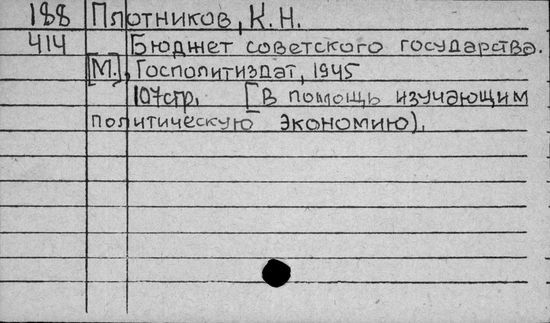 188 Плотников, К.Н.
414 Бюджет советского государства.
[М.], Госполитиздат, 1945
107стр. [В помощь изучающим
политическую экономию).